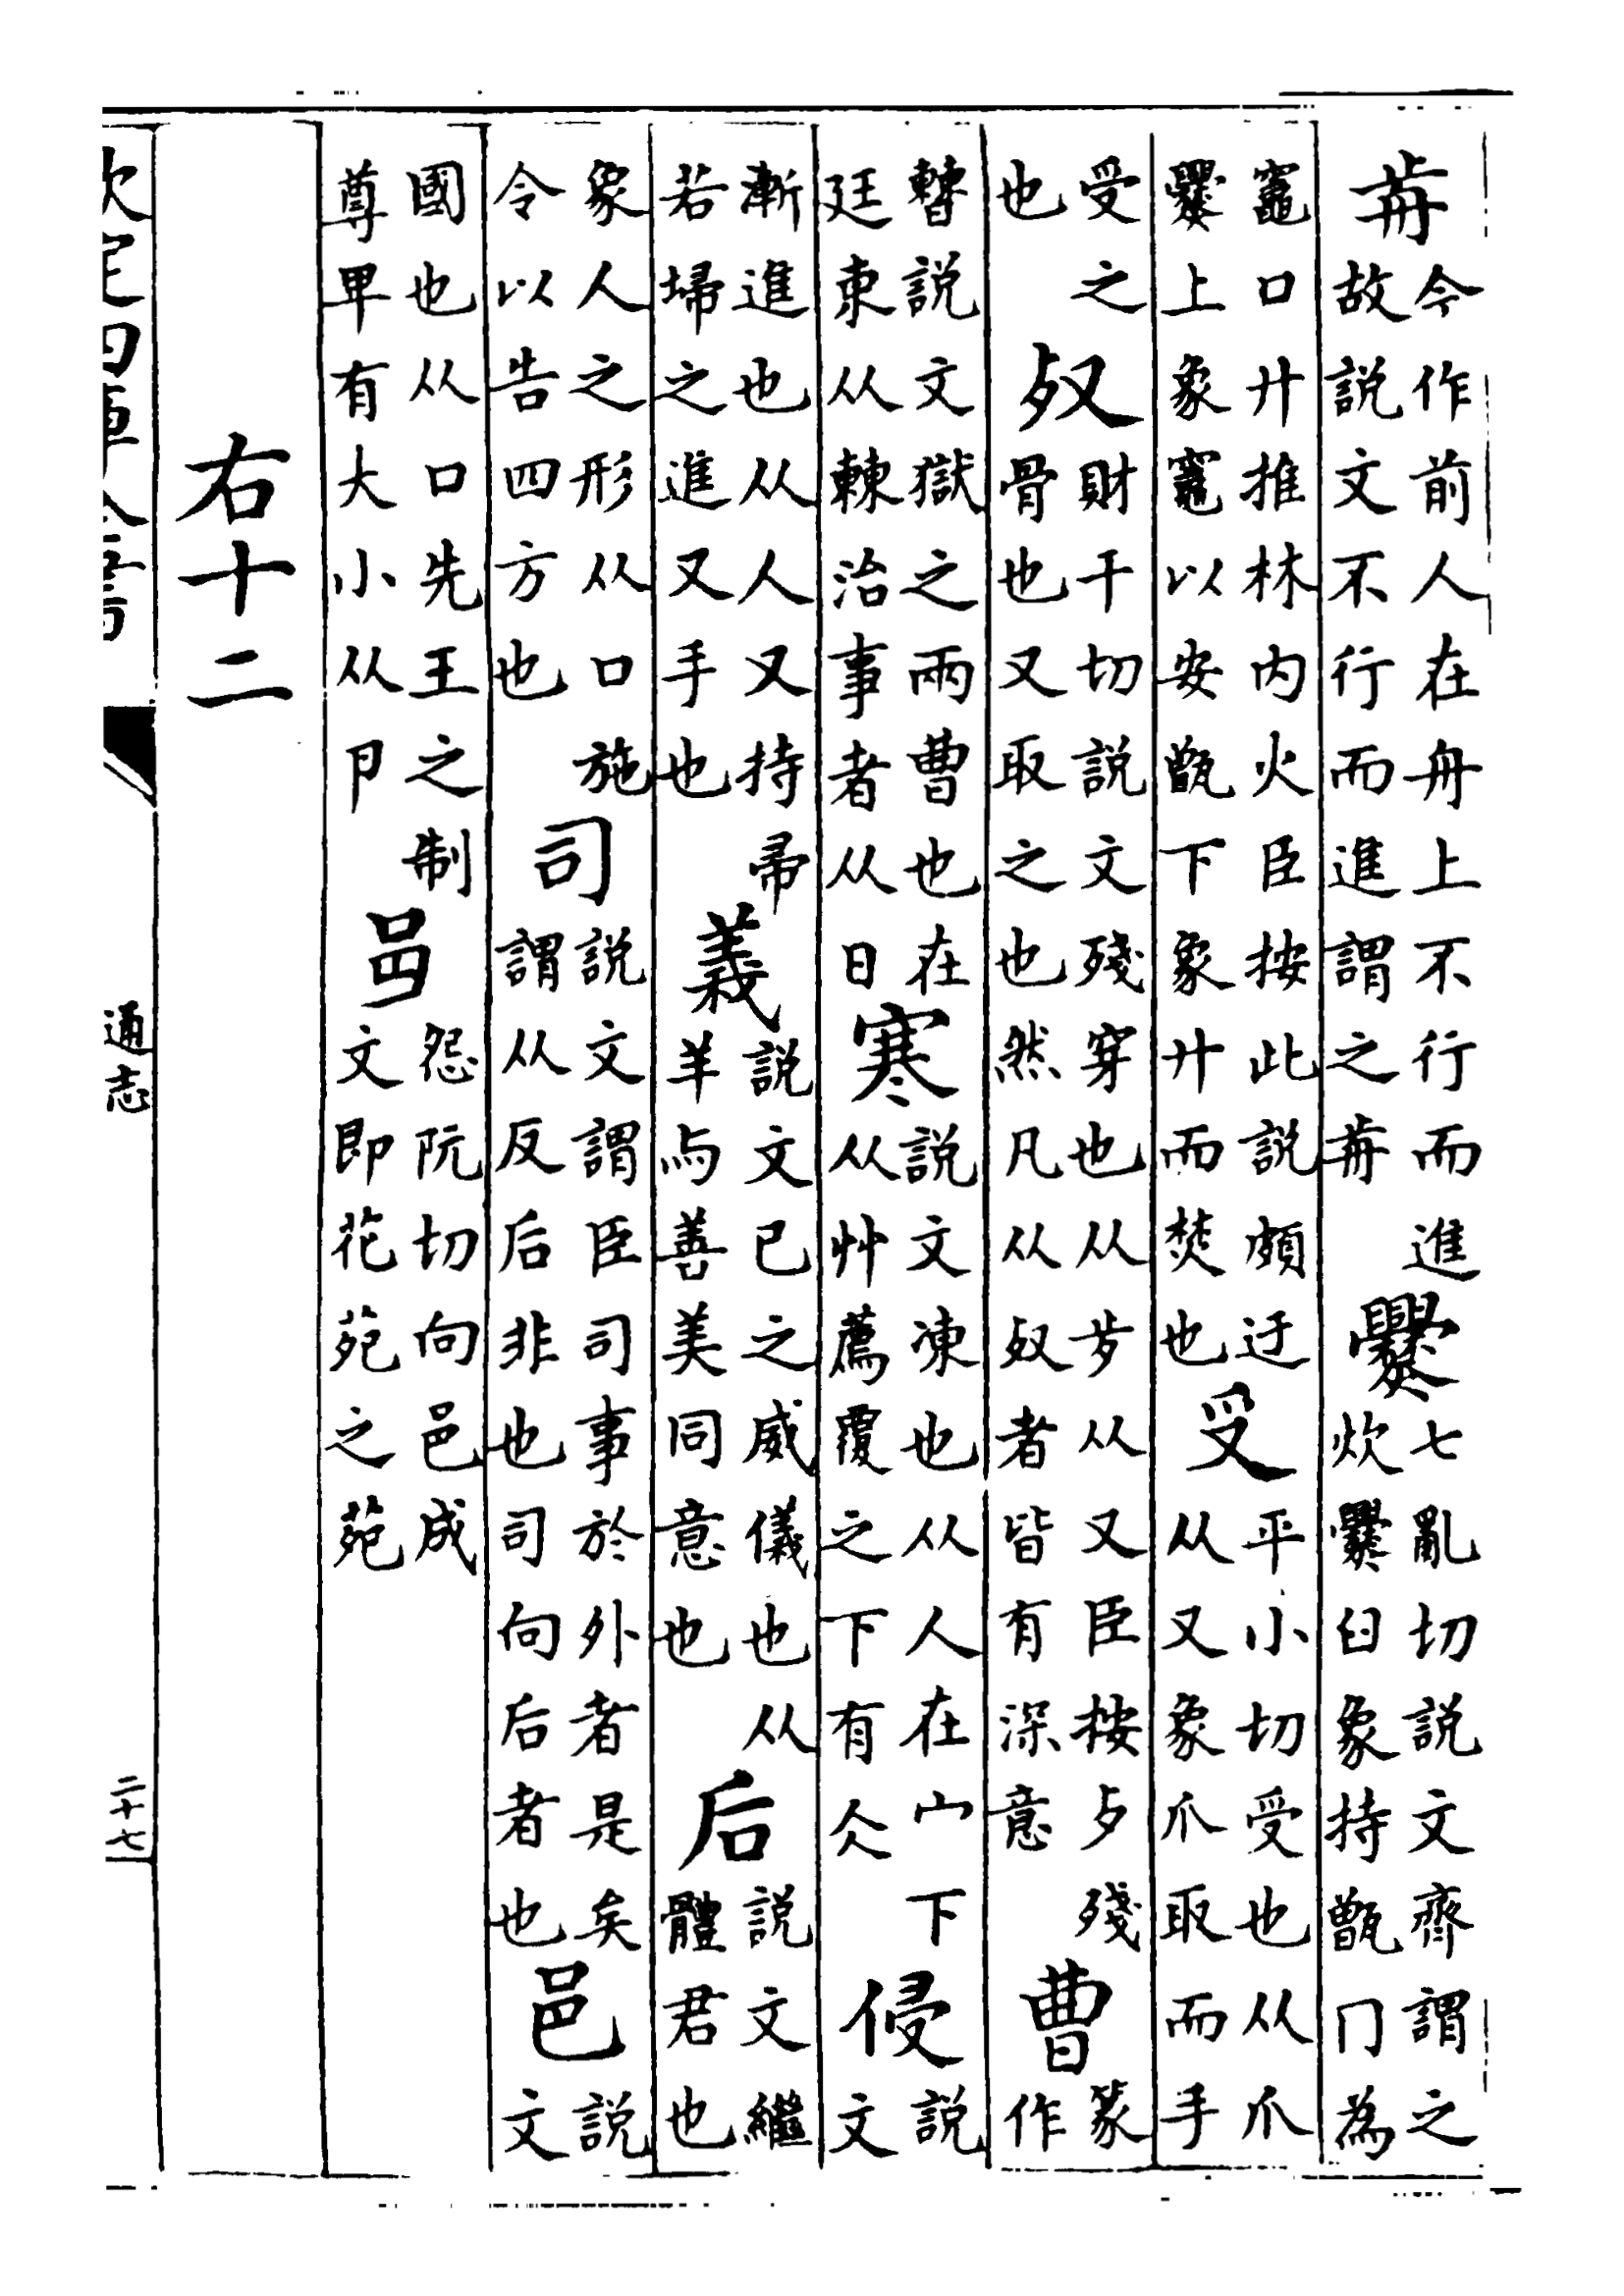 歬今作前人在舟上不行而進故説文不行而進謂之歬爨七亂切説文齊謂之炊爨臼象持甑冂為
竈口廾推林内火臣按此説頗迂爨上象竈以安甑下象廾而焚也𠬪平小切受也从爪从又象爪取而手
受之也𣦼財干切説文殘穿也从歺从又臣按歺殘骨也又取之也然凡从𣦼者皆有深意曹篆作
㯥説文獄之兩曹也在廷東从㯥治事者从曰寒説文凍也从人在宀下从茻薦覆之下有仌侵説文
漸進也从人又持帚若埽之進又手也義説文已之威儀也从羊与善美同意也后説文繼體君也
象人之形从口施令以告四方也司説文謂臣司事於外者是矣謂从反后非也司向后者也邑説文
國也从口先王之制尊卑有大小从卩怨阮切向邑成文即花苑之苑
右十二
欽定四庫全書
通志
二十七